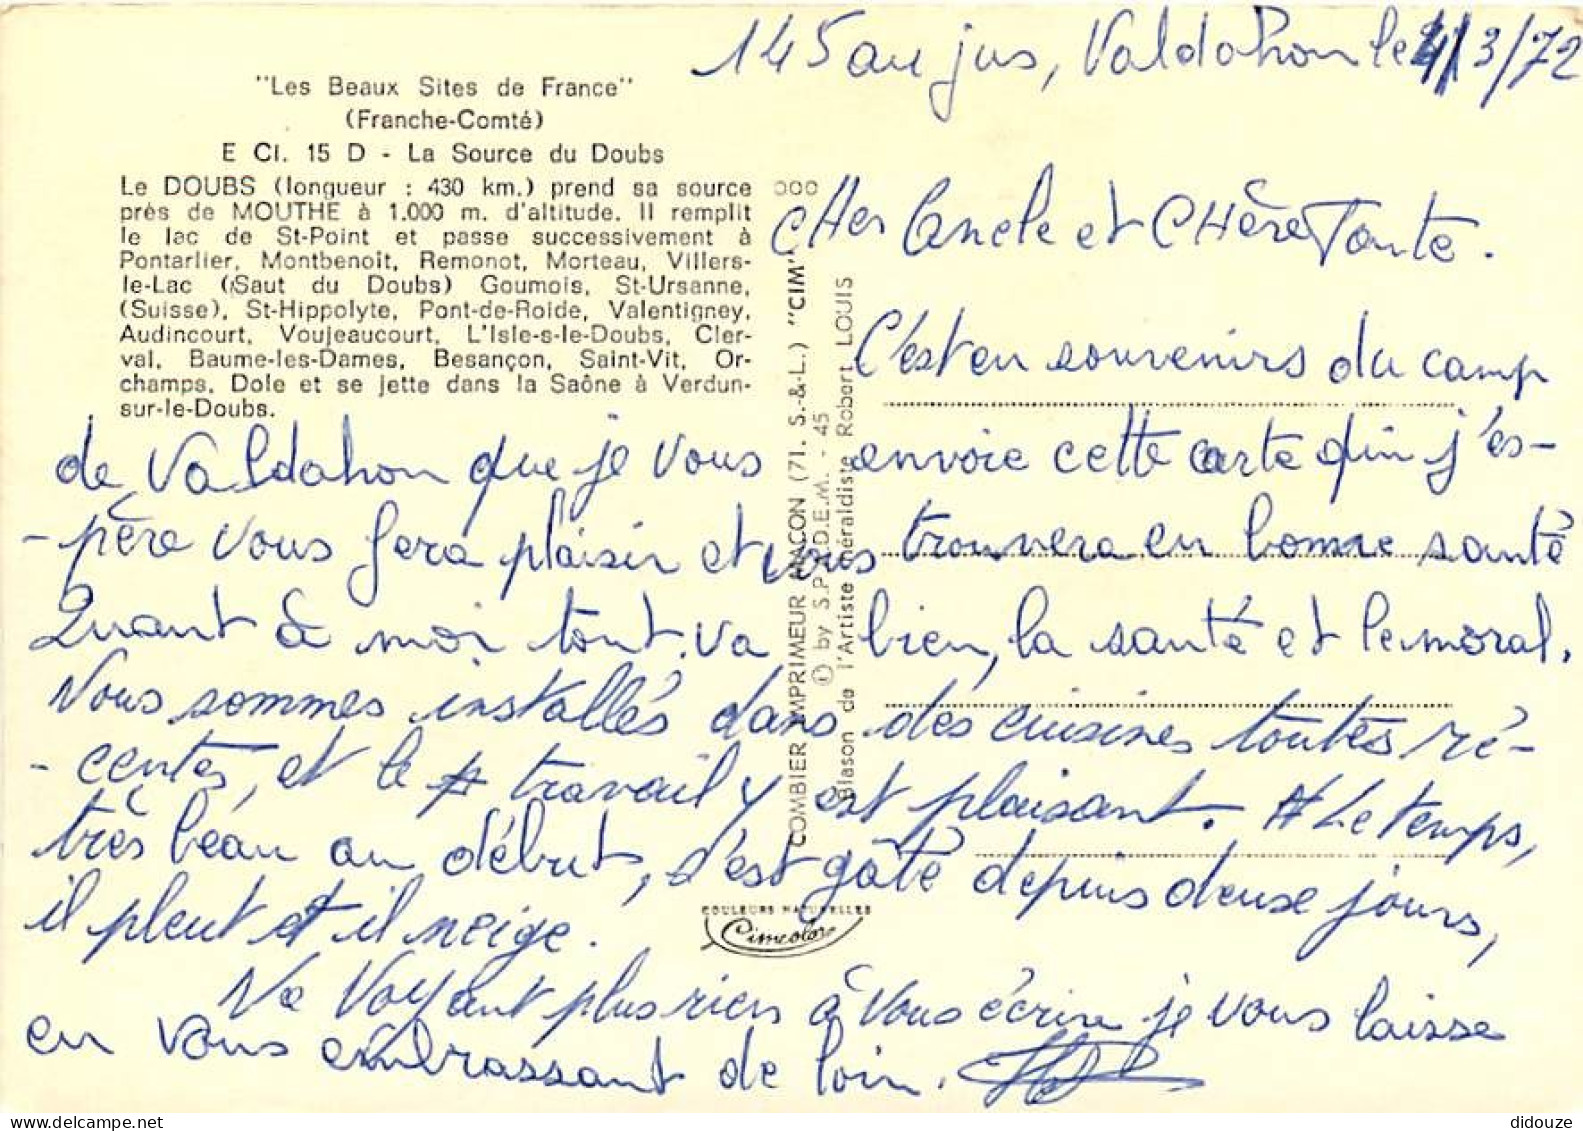 145 au jus, Valdahon le 4/3/72
"Les Beaux Sites de France"
(Franche-Comté)
E CI. 15 D - La Source du Doubs
Le DOUBS (longueur : 430 km.) prend sa source
près de MOUTHE à 1.000 m. d'altitude. Il remplit
le lac de St-Point et passe successivement à
Pontarlier, Montbenoit, Remonot, Morteau, Villers-
le-Lac (Saut du Doubs) Goumois, St-Ursanne,
(Suisse), St-Hippolyte, Pont-de-Roide, Valentigney,
Audincourt, Voujeaucourt, L'Isle-s-le-Doubs, Cler-
val, Baume-les-Dames, Besançon, Saint-Vit, Or-
champs, Dole et se jette dans la Saône à Verdun-
sur-le-Doubs.
COMBIER IMPRIMEUR MACON (71. S.-&-L.) "CIM"
© by S.P.A.D.E.M. - 45
Blason de l'Artiste Héraldiste Robert LOUIS
CHer Oncle et CHère Tante.
C'est en souvenirs du camp
de Valdahon que je vous envoie cette carte qui j'es-
-père vous fera plaisir et vous trouvera en bonne santé
Quant à moi tout va bien, la santé et le moral.
Nous sommes installés dans des cuisines toutes ré-
-centes, et le travail y est plaisant. Le temps,
très beau au début, s'est gâté depuis deuse jours,
il pleut et il neige.
COULEURS NATURELLES
Cimcolor
Ne Voyant plus rien à vous écrire je vous laisse
en vous embrassant de loin.
didouze